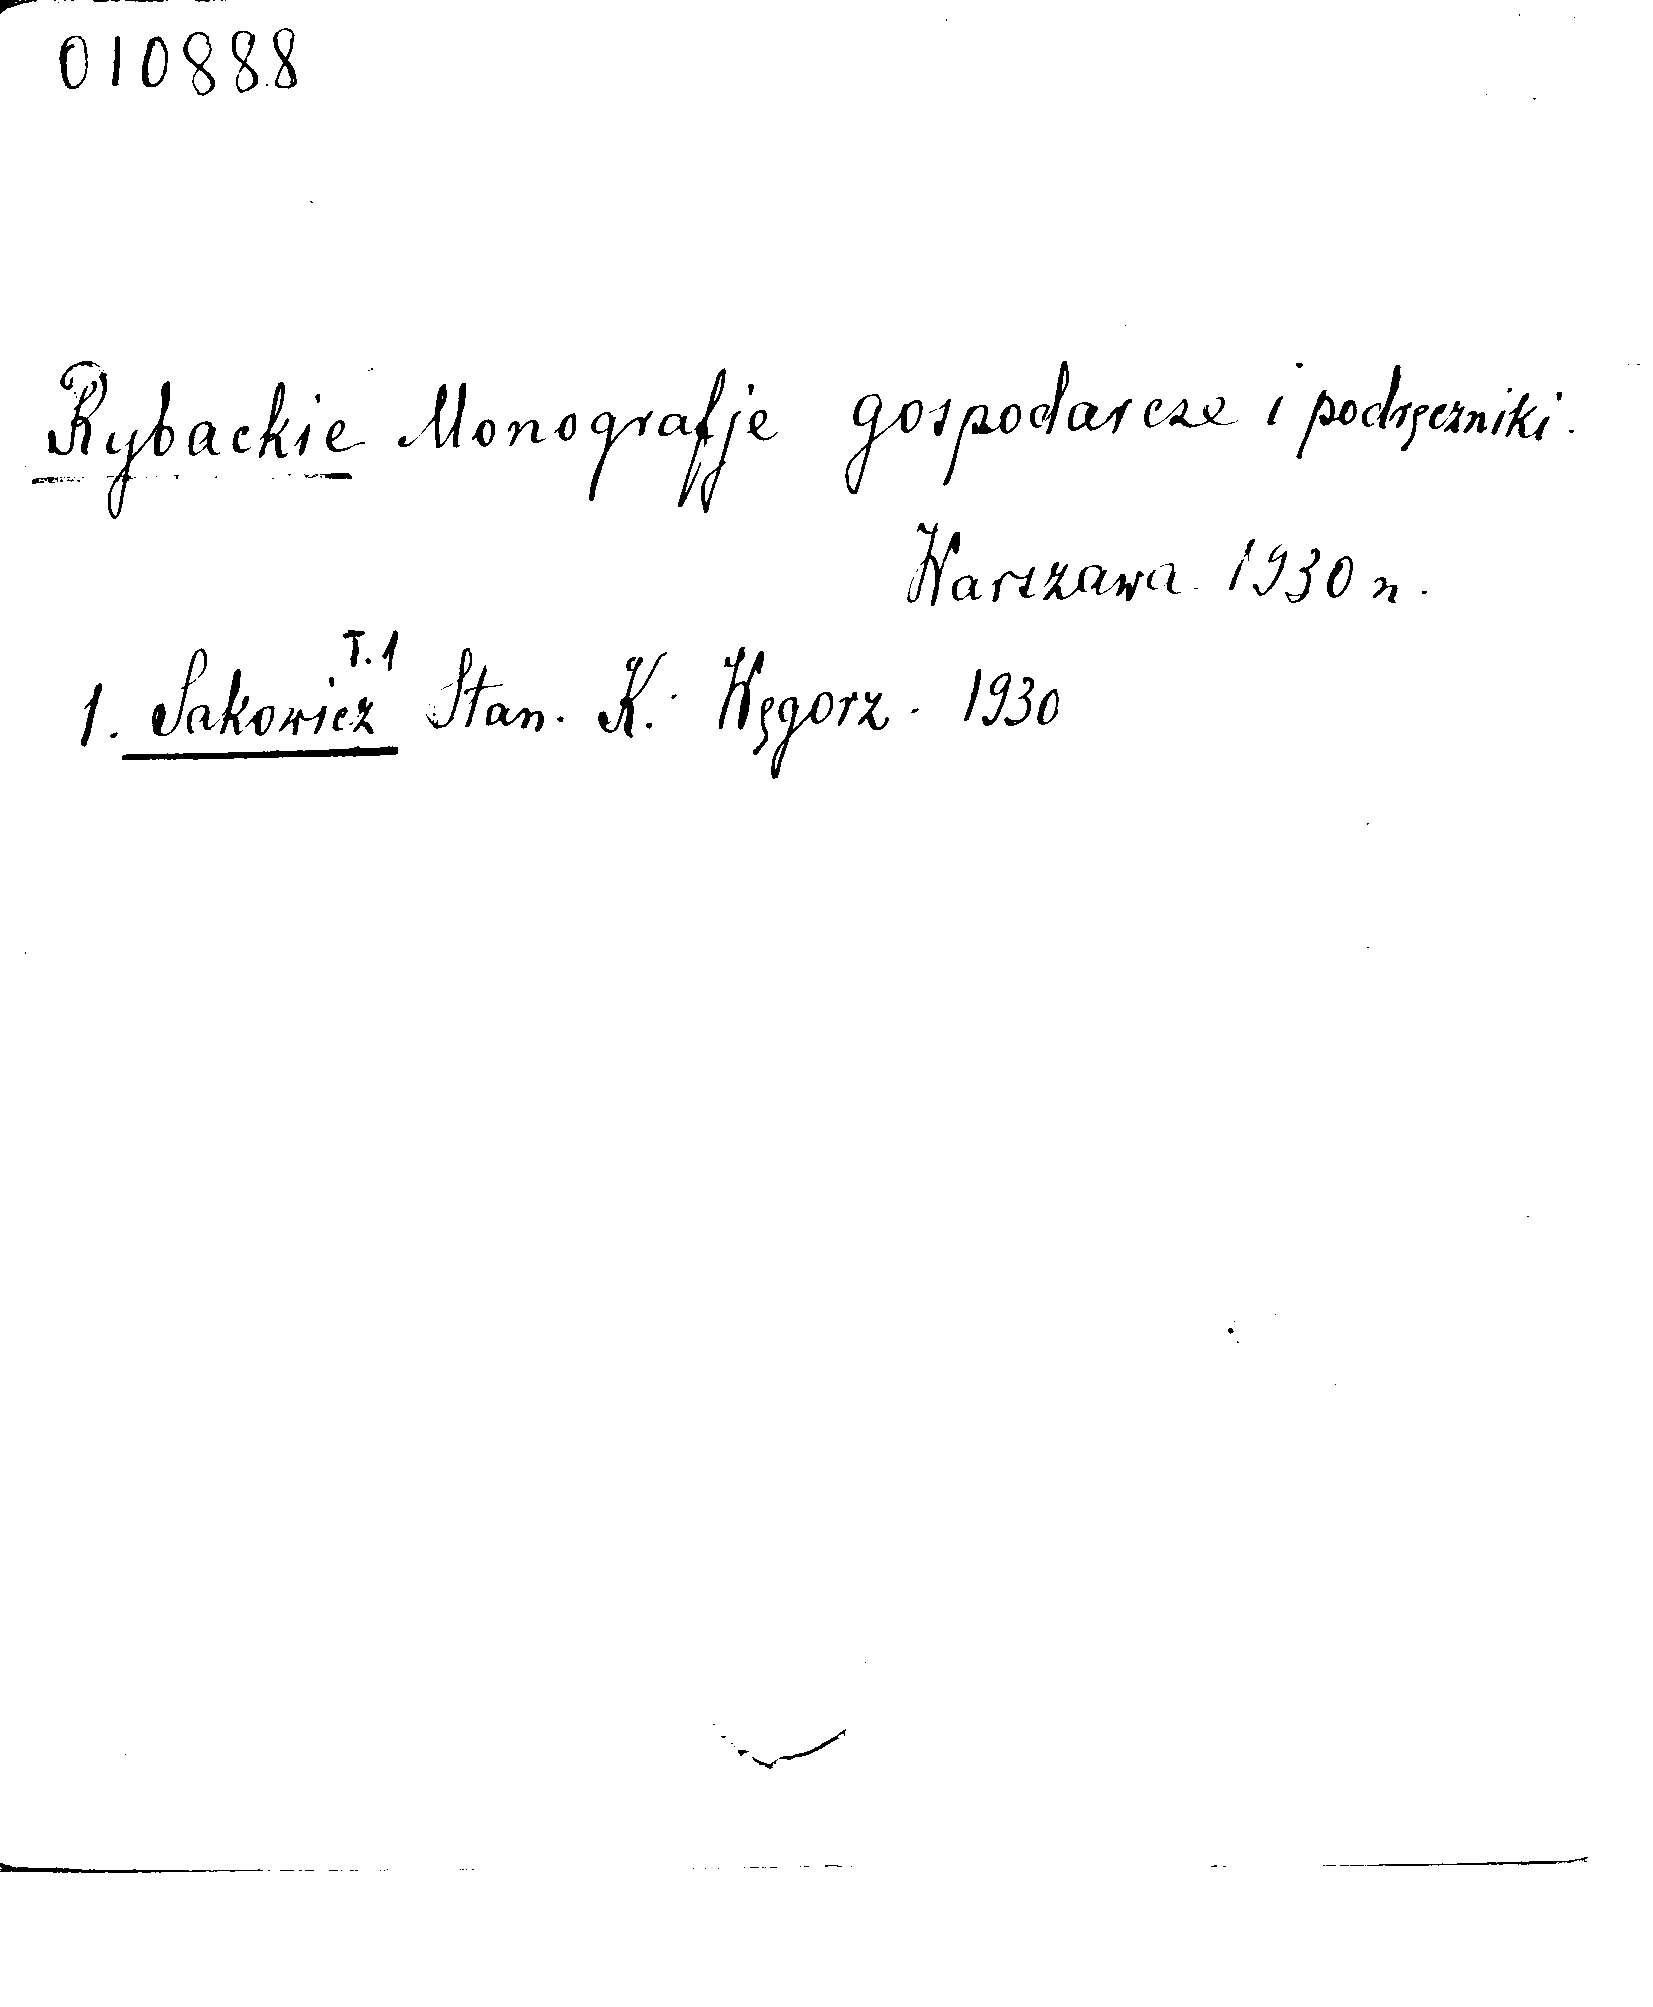 010888
Rybackie Monografje gospodarcze i podręczniki.
Warszawa. 1930 n.
T.1
1. Sakowicz Stan. K. Węgorz. 1930